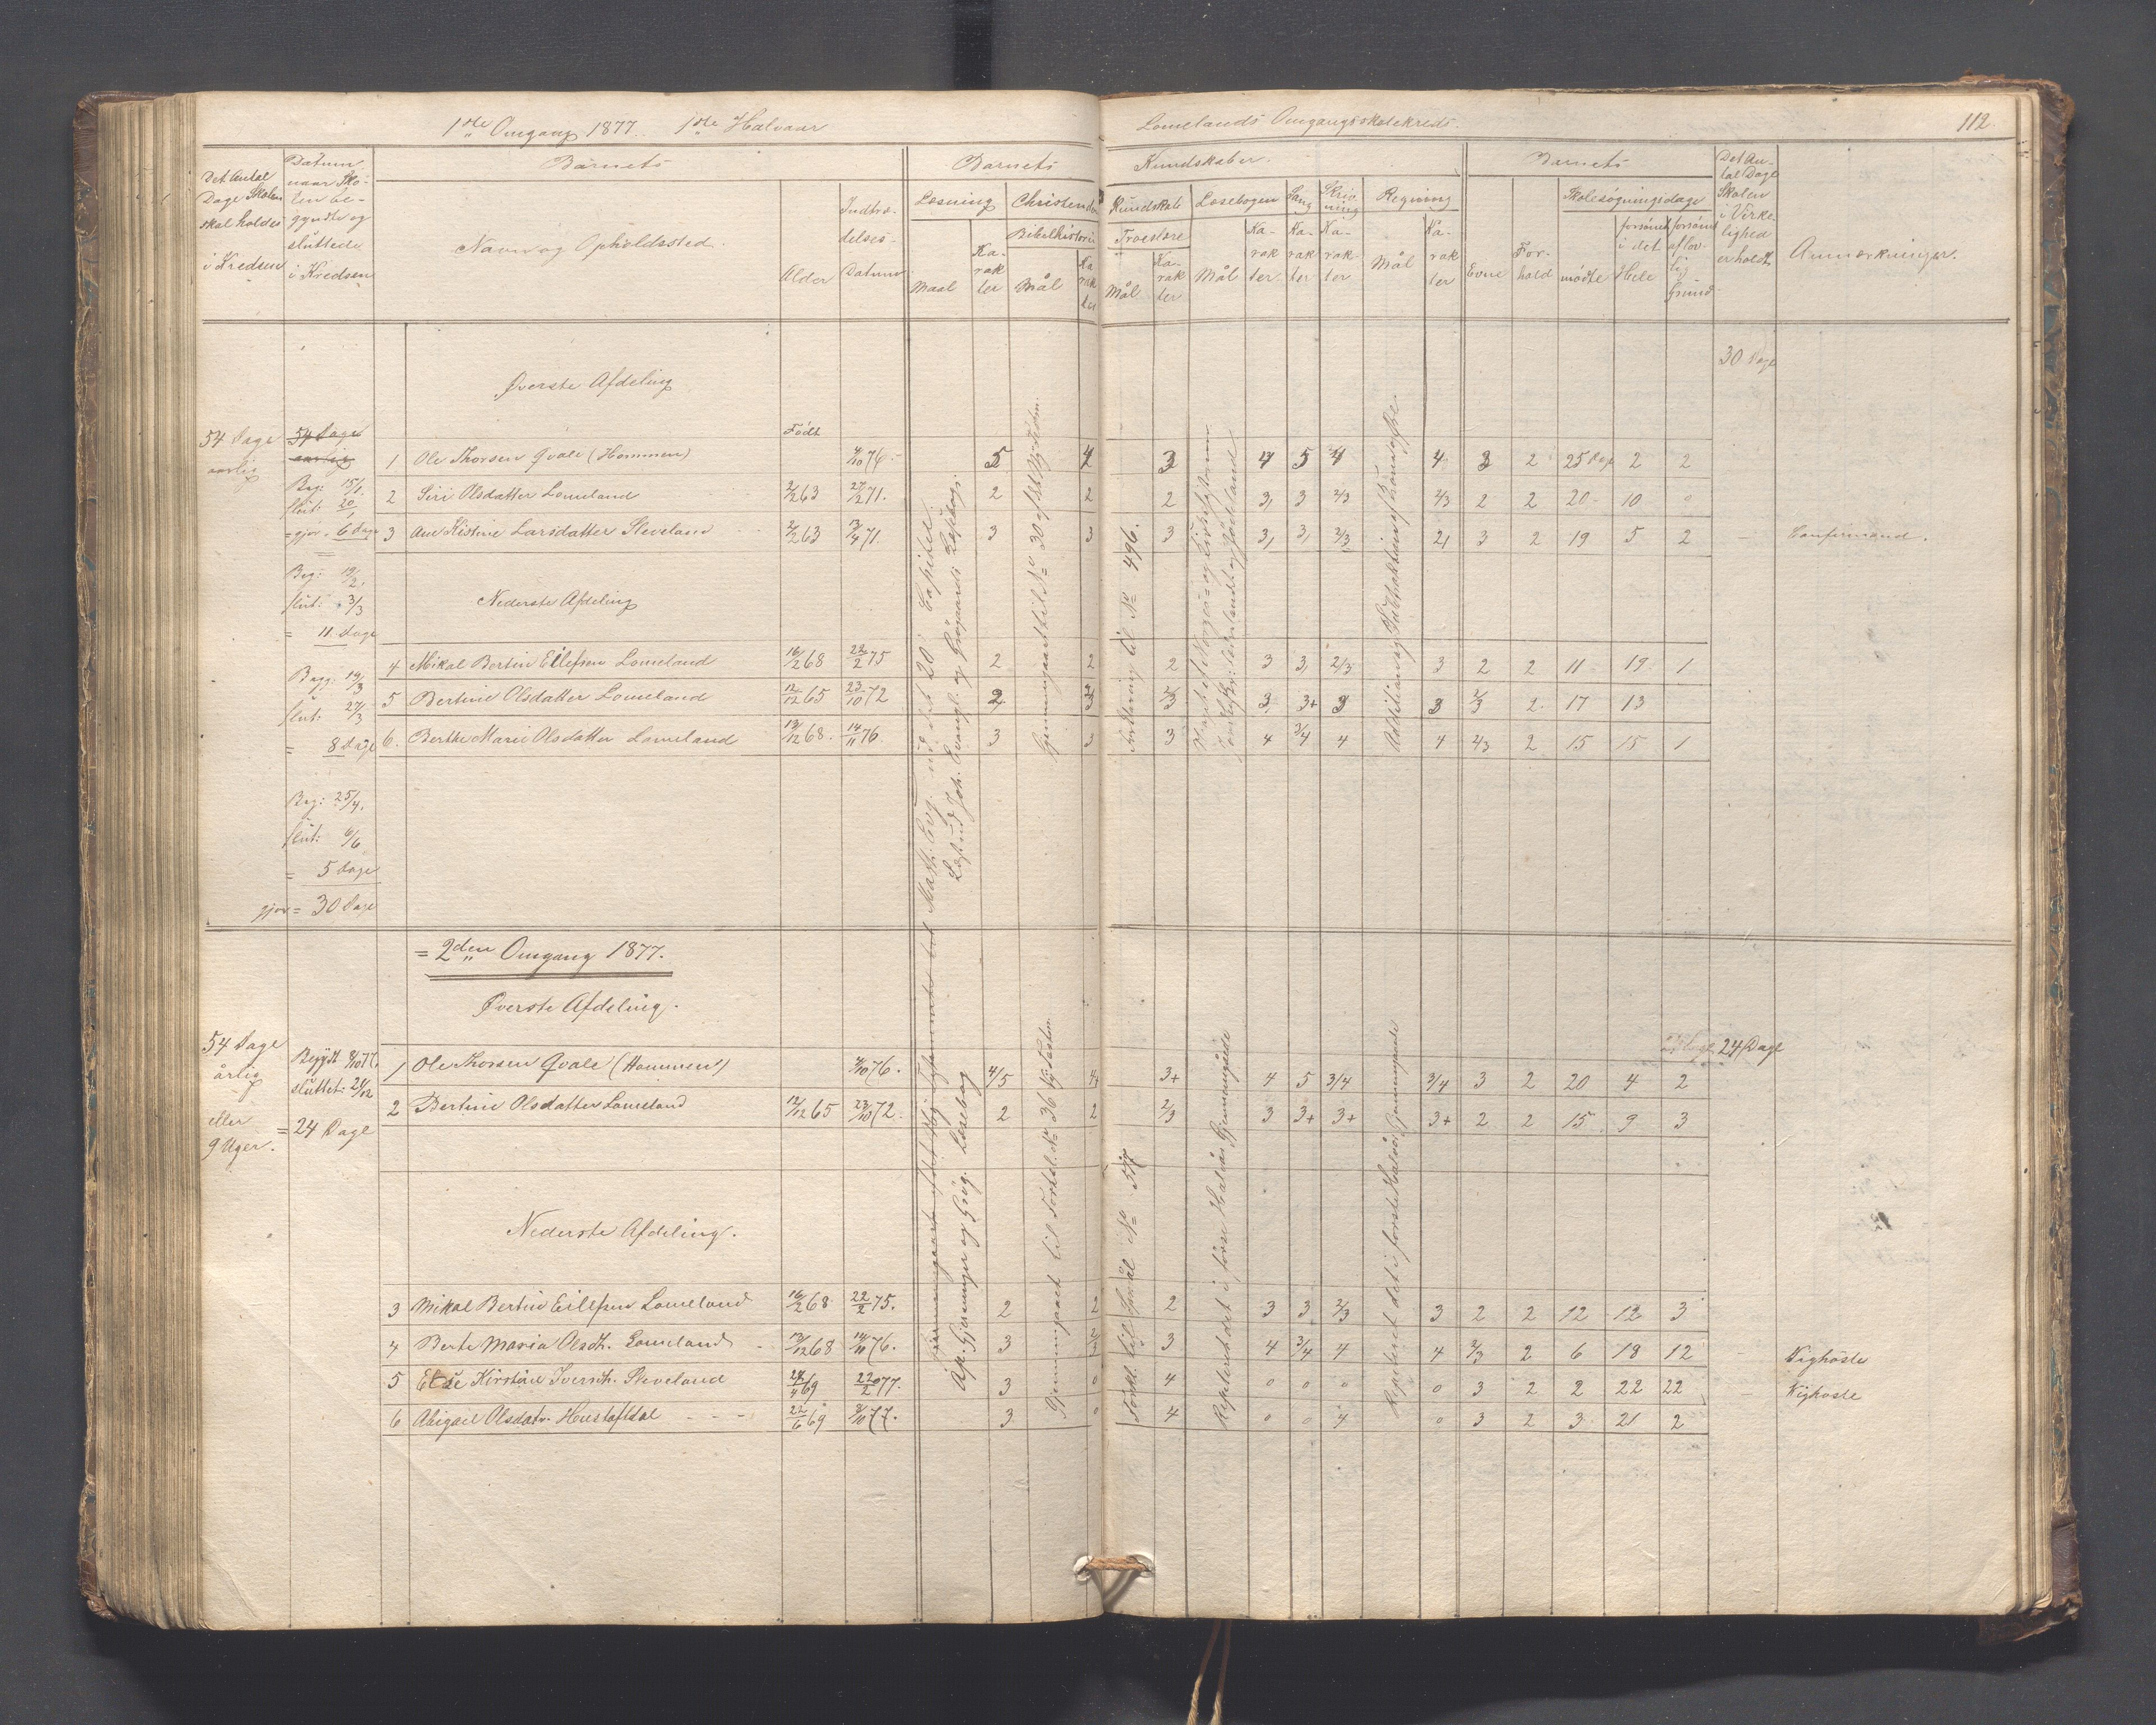 1ste Omgang 1877. 1ste Halvaar
Lomelands Omgangsskolekreds.
112.
Det Antal Dage Skolen skal holdes i Kredsen
Datum naar Skolen begyndte og sluttede i Kredsen
Barnets
Navn og Opholdssted.
Alder
Indtrædelses-Datum
Barnets
Kundskaber.
Læsning
Maal
Karakter
Christendoms
Kundskab
Bibelhistorie
Mål
Karakter
Troeslære
Mål
Karakter
Læsebogen
Mål
Karakter
Sang
Karakter
Skrivning
Karakter
Regning
Mål
Karakter
Barnets
Evne
Forhold
Skolesøgningsdage
mødte
forsømt i det Hele
forsømt af lovlig Grund
Det Antal Dage Skolen i Virkelighed er holdt
Anmærkninger.
30 Dage
Øverste Afdeling
54 Dage aarlig
54 Dage
aarlig
Født
1 Ole Thorsen Qvale (Hommen) 4/10 76. 5 4 3 4 5 4 4 3 2 25 Dage 2 2
Beg: 15/1
slut: 20/1
= gjør = 6 Dage
2 Siri Olsdatter Lomeland 2/2 63 27/2 71. 2 2 2 3, 3 2/3 2/3 2 2 20 10 0
3 Ane Kistine Larsdatter Sleveland 2/2 63 13/4 71. 3 3 3 3, 3, 2/3 2, 3 2 19 5 2 — Confirmand.
Beg: 19/2.
slut: 3/3
= 11 Dage
Nederste Afdeling
4 Mikal Bertin Eilefsen Lomeland 16/2 68 22/2 75 2 2 2 3 3, 2/3 3 2 2 11 19 1
Begy: 19/3
slut: 27/3
= 8 Dage
5 Bertine Olsdatter Lomeland 12/12 65 23/10 72 2 3 2/3 3, 3+ 3 3 2/3 2. 17 13
6. Berthe Marie Olsdatter Lomeland 13/12 68. 14/11 76 3 3 3 4 3/4 4 4 2/3 2 15 15 1
Beg: 25/4.
slut: 6/6
= 5 Dage
gjør = 30 Dage
Math. Evg. ud det 20 Capitel.
Læst ud Joh. Evangl. og Grøgaards Læsebog.
Gjennemgaaet til No 30 af det Ny Testm.
Forklaring til No 496.
Addition og Subtraktion af
= 2den Omgang 1877.
Øverste Afdeling.
54 Dage årlig eller 9 Uger.
Begyndt 8/10 77.
sluttet: 21/12
= 24 Dage
24 Dage
1 Ole Thorsen Qvale (Hommen) 4/10 76. 4/5 4+ 3+ 4 5 3/4 3/4 3 2 20 4 2
2 Bertine Olsdatter Lomeland 12/12 65 23/10 72. 2 2 2/3 3 3+ 3+ 3+ 2 2 15 9 3
Nederste Afdeling.
3 Mikal Bertin Eilefsen Lomeland 16/2 68 22/2 75. 2 2 2 3 3 2/3 3 2 2 12 12 3
4 Berte Maria Olsdt. Lomeland 13/12 68 14/11 76. 3 2/3 3 4 3/4 4 4 2/3 2 6 18 12 Kighoste
5 Else Kirstine Iversdt. Sleveland 22/2 77. 3 0 4 0 0 0 0 3 2 2 22 22 Kighoste
6 Abigael Olsdatr. 22/6 69 8/10 77. 3 0 4 0 0 4 0 3 2 3 21 2
Ap. Gjerninger og Grøg. Læsebog
Gjennemgaaet til Fortæl. No 36
Forkl. til Spmål No
Repeteret det i første Halvår Gjennemgåede
Repeteret det i første Halvår Gjennemgaaede